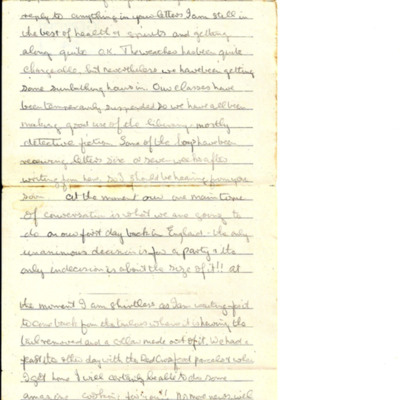 reply to anything in your letters. I am still in
the best of health & spirits and getting
along quite O.K. The weather has been quite
changeable, but nevertheless we have been getting
some sunbathing hours in. Our classes have
been temporarily suspended so we have all been
making good use of the library - mostly
detective fiction. Some of the boys have been
receiving letters six or seven weeks after
writing from here, so I should be hearing from you
soon. At the moment our main topic
of conversation is what we are going to
do on our first day back in England - the only
unanimous decision is for a party & the
only indecision is about the size of it!! At
the moment I am shirtless as I am waiting for it
to come back from the tailors where it is having the
tail removed and a collar made out of it. We had a
the other day with the Red Cross food parcels & when
I get home I will certainly be able to do some
cooking for you!! No more news will